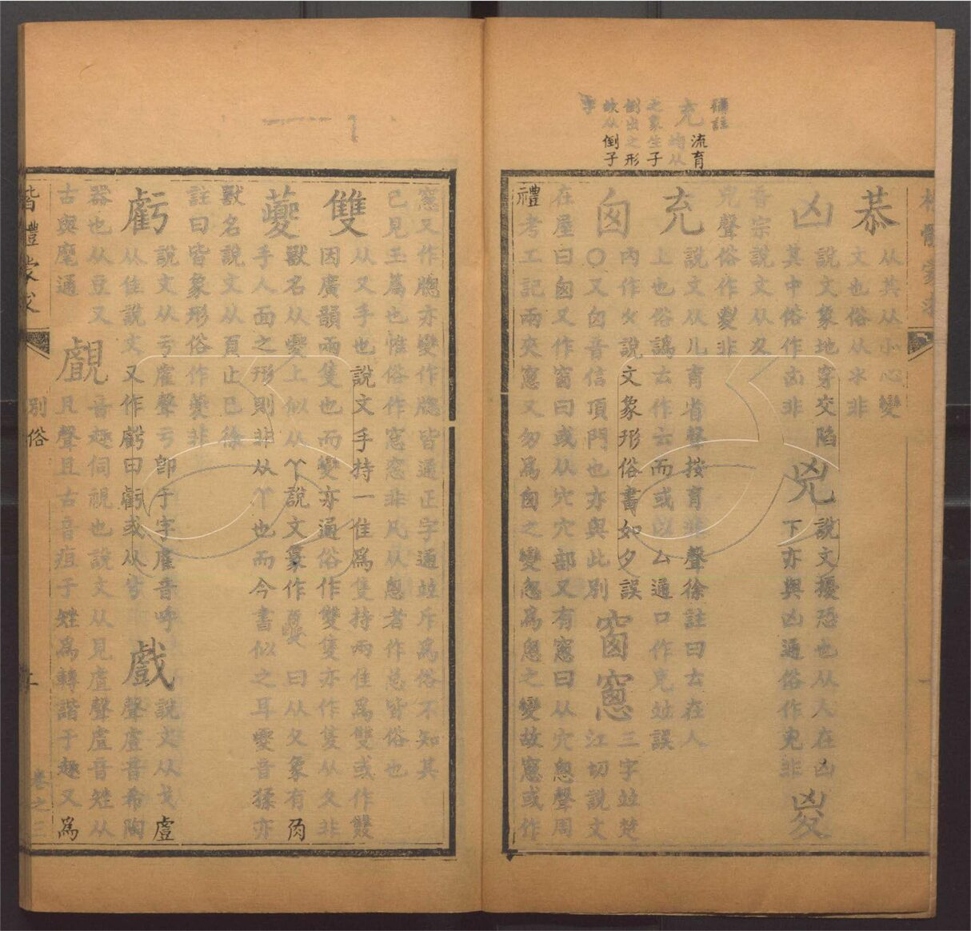 補註
充
流育
皆从
之象生子
倒出之形
故从倒子
字
恭
从其从小心變
文也俗从氺非
凶
說文象地穿交陷
其中俗作㐫非
兇
說文擾恐也从人在凶
下亦與凶通俗作兇非
㚇
音宗說文从夊
兇聲俗作㚇非
充
說文从儿育省聲按育非聲徐註曰𠫓在人
上也俗譌𠫓作云而或以厶通口作克竝誤
囱
內作夊說文象形俗書如夕誤
〇又囟音信頂門也亦與此別
窗窻
江切說文
三字竝楚
在屋曰囱又作窗曰或从穴穴部又有窻曰从穴悤聲周
禮考工記兩夾窻又匆爲囱之變怱爲悤之變故窻或作
窓又作牕亦變作牎皆通正字通竝斥爲俗不知其
已見玉篇也惟俗作窓窓非凡从悤者作忩皆俗也
雙
从又手也說文手持一隹爲隻持兩隹爲雙或作䨥
因廣韻兩隻也而變亦通俗作雙隻亦作隻从夊非
夔
獸名从夔上似从丷說文彖作夔曰从夊象有角
手人面之形則非从䒑也而今書似之耳夔音猱亦
獸名說文从頁止巳徐
註曰皆象形俗作夔非
虧
說文从亏雐聲亏卽于字雐音呼
从隹說文又作𧇾曰虧或从兮
戲
說文从戈䖒
聲䖒音希陶
器也从豆又
古與麾通
覰
音趣伺視也說文从見䖒聲䖒音姓从
且聲且古音疽于姓爲轉諧于趣又爲
皆體蒙求
別俗
卷之三